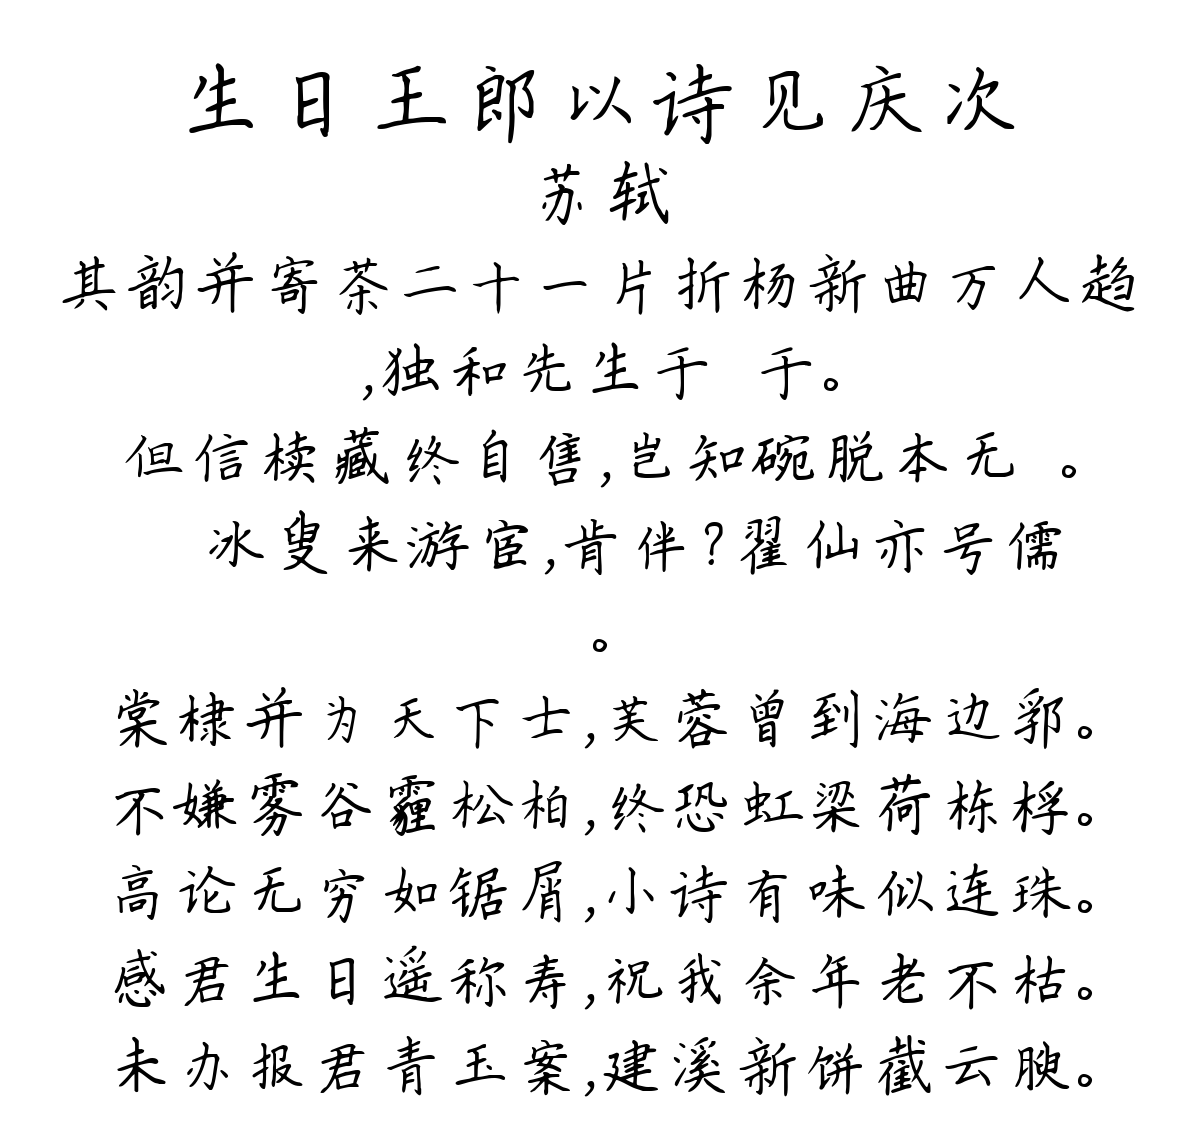 生日王郎以诗见庆次
苏轼
其韵并寄茶二十一片折杨新曲万人趋
,独和先生于 于。
但信椟藏终自售,岂知碗脱本无 。
冰叟来游宦,肯伴?翟仙亦号儒
。
棠棣并为天下士,芙蓉曾到海边郛。
不嫌雾谷霾松柏,终恐虹梁荷栋桴。
高论无穷如锯屑,小诗有味似连珠。
感君生日遥称寿,祝我余年老不枯。
未办报君青玉案,建溪新饼截云腴。